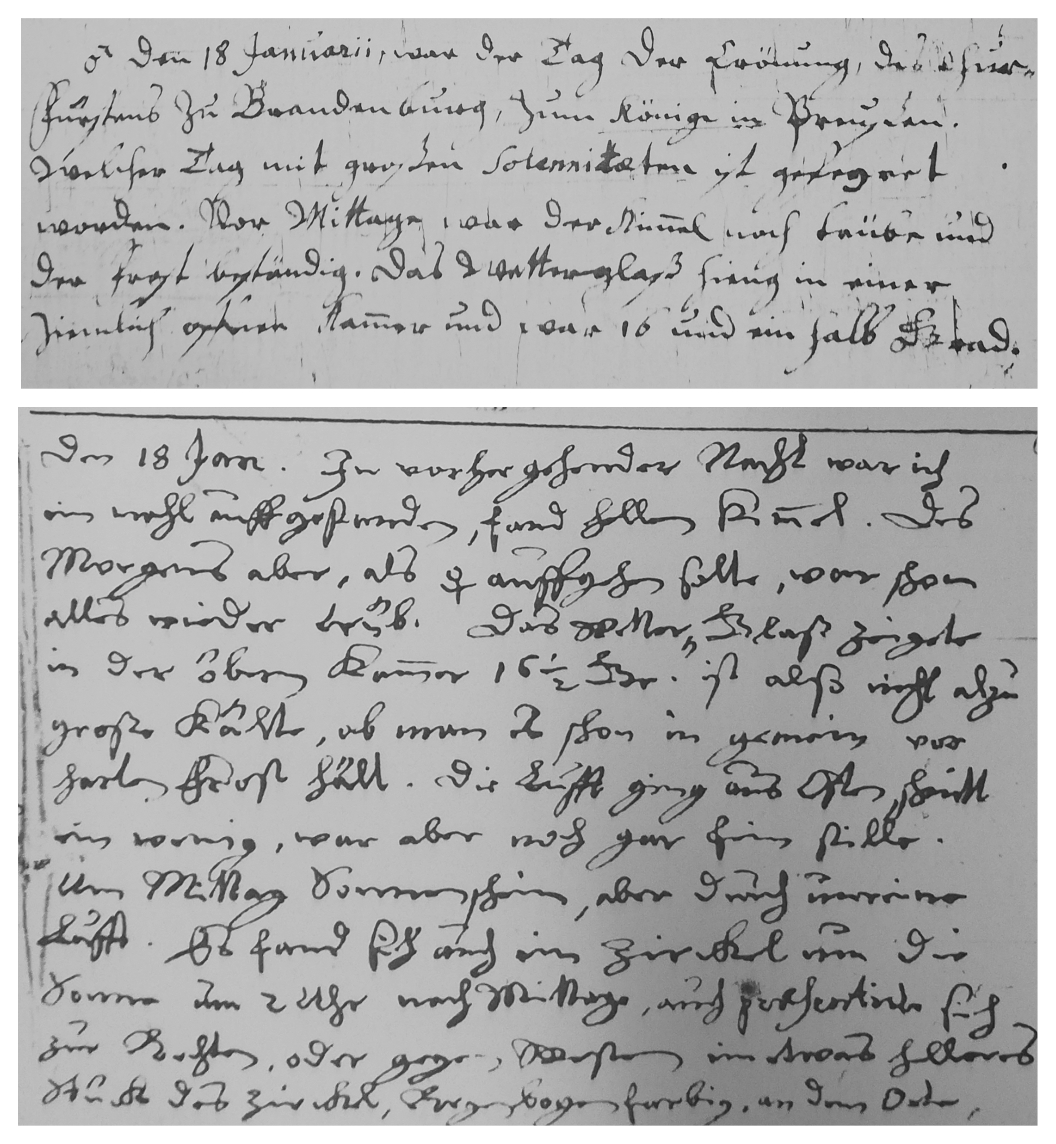 ♂ Den 18 Januarii, war der Tag Der Crönung, des Chur-
Fürstens Zu Brandenburg, Zum Könige in Preussen.
Welcher Tag mit grossen Solennitæten ist gefeyret
worden. Vor Mittage war der Him̄el noch trübe und
der frost beständig. Das Wetterglaß hieng in einer
Ziemlich offenen Kam̄er und war 16 und ein halb Grad.
Den 18 Jan. In vorhergehender Nacht war ich
ein mahl auffgestanden, fand hellen Him̄el. Des
Morgens aber, als ☿ auffgehen solte, war schon
alles wieder trüb. Das Wetter-Glaß zeigete
in der obern Kam̄er 16 1/2 Gr. ist alß nicht alzu
große Kälte, ob man es schon in gemein vor
harten Frost hält. Die Lufft ging aus Osten, spielt
ein wenig, war aber noch gar fein stille.
Um Mittag Sonnenschein, aber durch unreine
Lufft. Es fand sich auch ein Zirckel um die
Sonne um 2 Uhr nach Mittage, auch præsentirte sich
zur Rechten, oder gegen Westen ein etwas helleres
Stück des Zirckel, Regenbogenfarbig, an dem Orte,